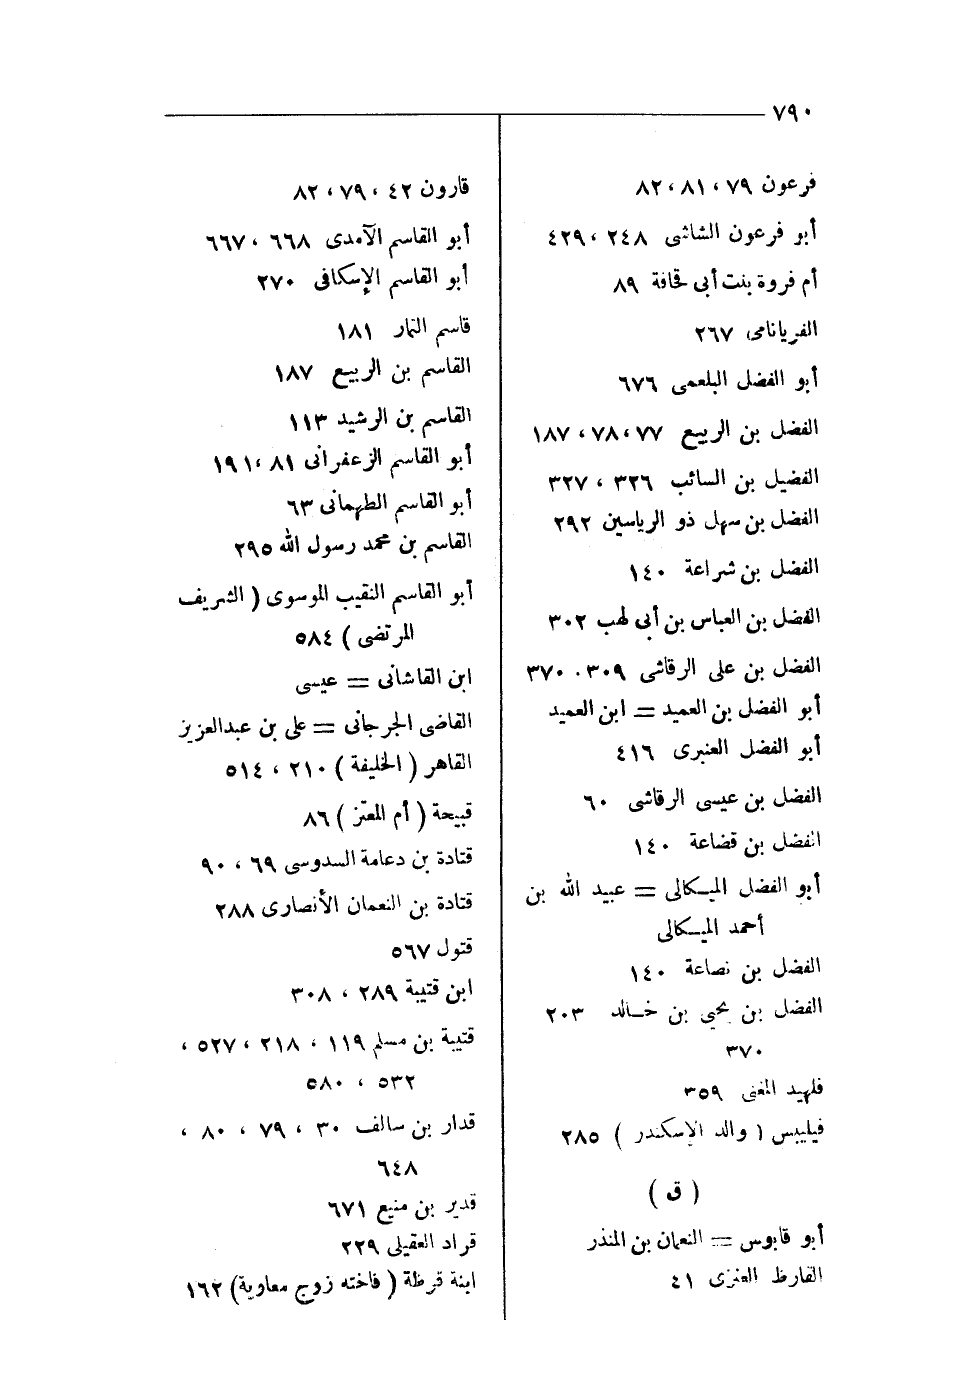 ٧٩٠
فرعون ٧٩ ، ٨١ ، ٨٢
أبو فرعون الشاشى ٢٤٨ ، ٤٢٩
أم فروة بنت أبى قحافة ٨٩
الفريانامى ٢٦٧
أبو الفضل البلعمى ٦٧٦
الفضل بن الربيع ٧٧ ، ٧٨ ، ١٨٧
الفضيل بن السائب ٣٢٦ ، ٣٢٧
الفضل بن سهل ذو الرياسين ٢٩٢
الفضل بن شراعة ١٤٠
الفضل بن العباس بن أبى لهب ٣٠٢
الفضل بن على الرقاشى ٣٠٩ . ٣٧٠
أبو الفضل بن العميد = ابن العميد
أبو الفضل العنبرى ٤١٦
الفضل بن عيسى الرقاشى ٦٠
الفضل بن قضاعة ١٤٠
أبو الفضل الميكالى = عبيد الله بن
أحمد الميكالى
الفضل بن نصاعة ١٤٠
الفضل بن يحيى بن خالد ٢٠٣
٣٧٠
فلهيد المغنى ٣٥٩
فيليبس ( والد الإسكندر ) ٢٨٥
( ق )
أبو قابوس = النعمان بن المنذر
القارظ العنزى ٤١
قارون ٤٢ ، ٧٩ ، ٨٢
أبو القاسم الآمدى ٦٦٨ ، ٦٦٧
أبو القاسم الإسكافى ٢٧٠
قاسم التمار ١٨١
القاسم بن الربيع ١٨٧
القاسم بن الرشيد ١١٣
أبو القاسم الزعفرانى ٨١ ، ١٩١
أبو القاسم الطهمانى ٦٣
القاسم بن محمد رسول الله ٢٩٥
أبو القاسم النقيب الموسوى ( الشريف
المرتضى ) ٥٨٤
ابن القاشانى = عيسى
القاضى الجرجانى = على بن عبدالعزيز
القاهر ( الخليفة ) ٢١٠ ، ٥١٤
قبيحة ( أم المعتز ) ٨٦
قتادة بن دعامة السدوسى ٦٩ ، ٩٠
قتادة بن النعمان الأنصارى ٢٨٨
قتول ٥٦٧
ابن قتيبة ٢٨٩ ، ٣٠٨
قتيبة بن مسلم ١١٩ ، ٢١٨ ، ٥٢٧ ،
٥٣٢ ، ٥٨٠
قدار بن سالف ٣٠ ، ٧٩ ، ٨٠ ،
٦٤٨
قدير بن منيع ٦٧١
قراد العقيلى ٢٢٩
ابنة قرظة ( فاخته زوج معاوية ) ١٦٢